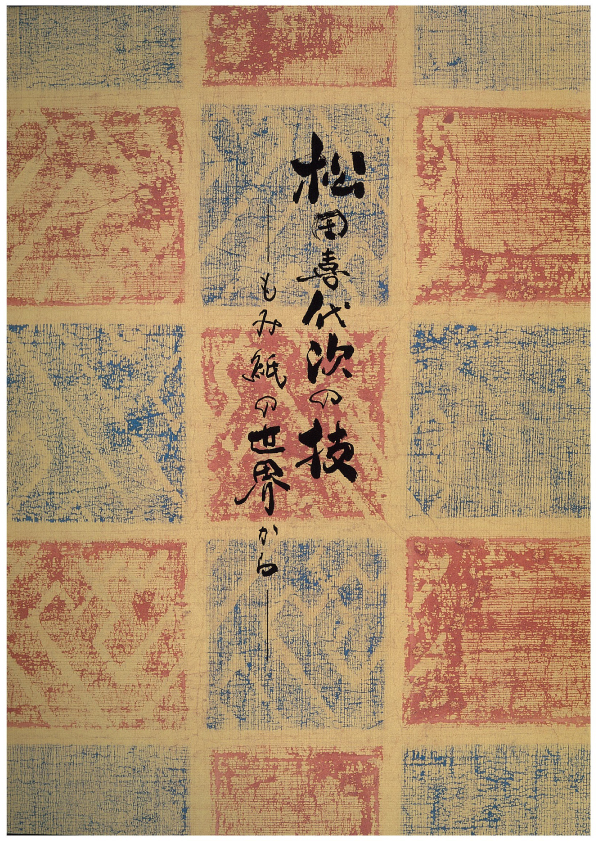 松田喜代次の技
―もみ紙の世界から―